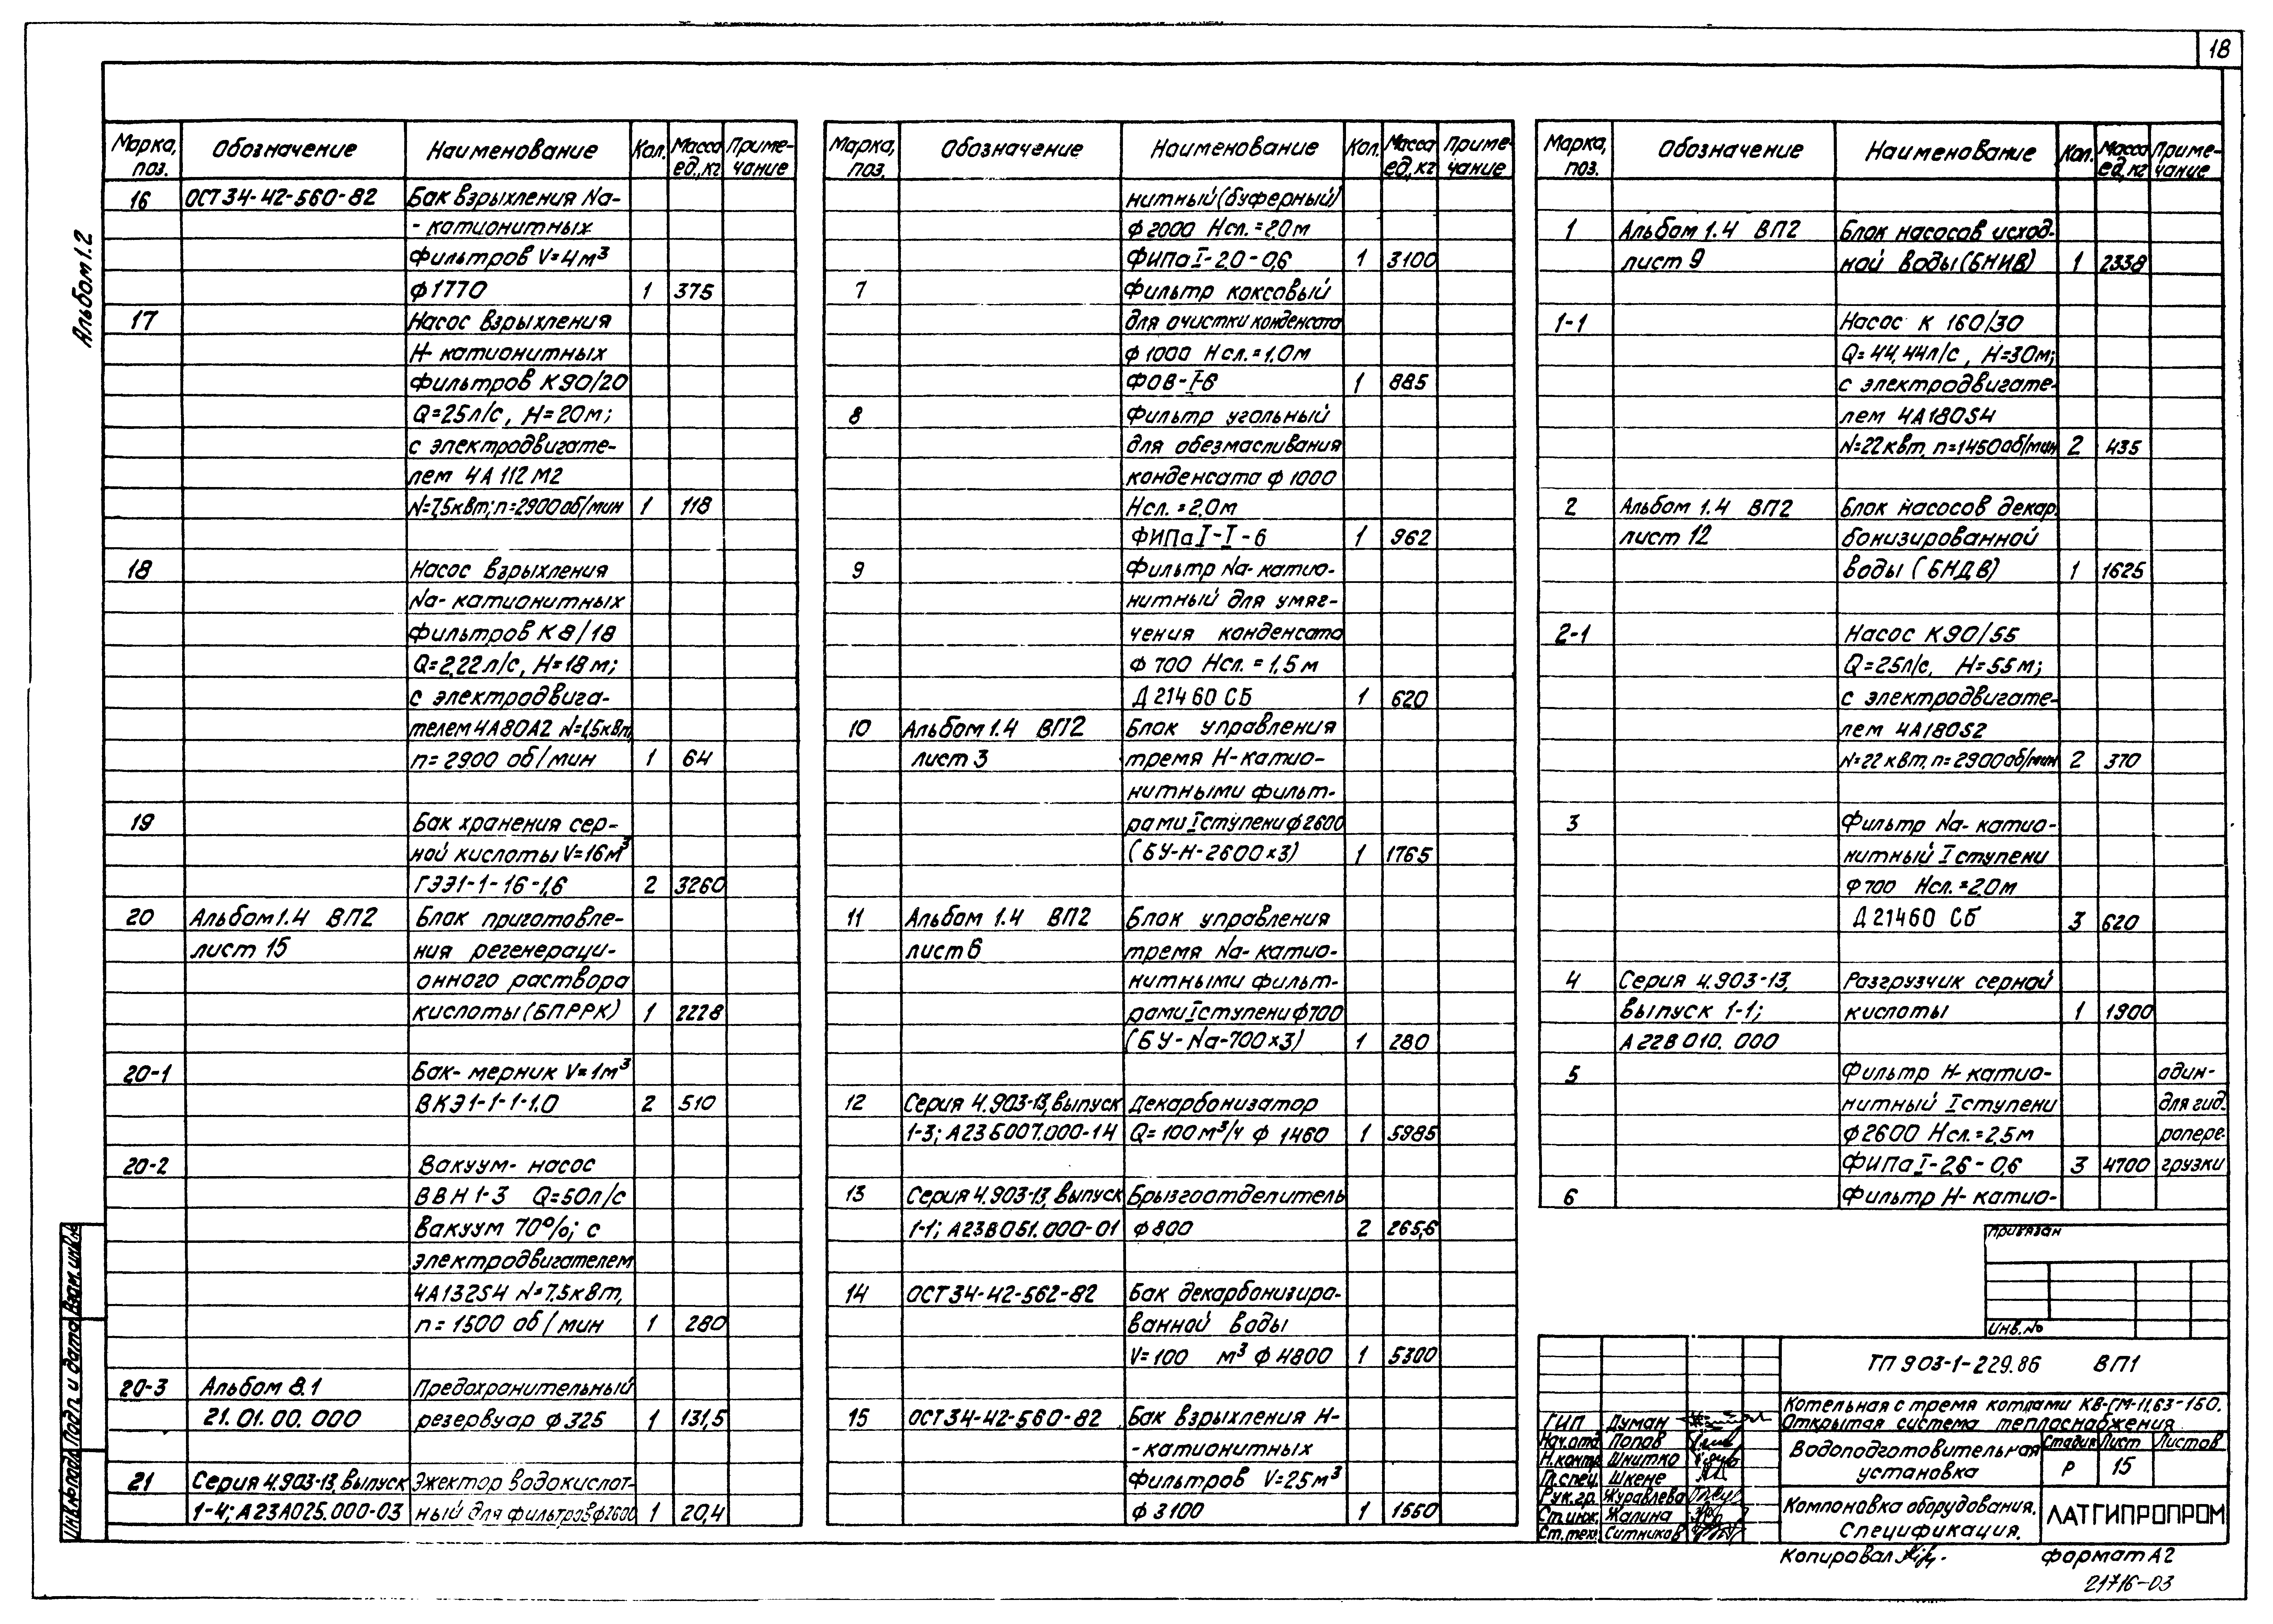 18
Альбом 1.2
Марка, поз. Обозначение Наименование Кол. Масса ед., кг Примечание
16 ОСТ 34-42-560-82 Бак взрыхления Na-
- катионитных
фильтров V=4м³
ф1770 1 375
17 Насос взрыхления
Н- катионитных
фильтров К90/20
Q=25л/с, Н=20м;
с электродвигате-
лем 4А 112 М2
N=7,5квт; п=2900 об/мин 1 118
18 Насос взрыхления
Na- катионитных
фильтров К 8/18
Q=2,22л/с, Н=18м;
с электродвига-
телем 4А80А2 N=1,5квт,
п= 2900 об/мин 1 64
19 Бак хранения сер-
ной кислоты V=16м³
ГЭЭ1-1-16-1,6 2 3260
20 Альбом 1.4 ВП2 Блок приготовле-
лист 15 ния регенераци-
онного раствора
кислоты (БПРРК) 1 2228
20-1 Бак- мерник V=1м³
ВКЭ1-1-1-1.0 2 510
20-2 Вакуум- насос
ВВН 1-3 Q=50л/с
Вакуум 70%; с
электродвигателем
4А132S4 N=7.5квт,
п= 1500 об/мин 1 280
20-3 Альбом 8.1 Предохранительный
21.01.00.000 резервуар ф 325 1 131,5
21 Серия 4.903-13, выпуск Эжектор водокислот-
1-4; А23А025.000-03 ный для фильтров ф2600 1 20,4
Марка, поз. Обозначение Наименование Кол. Масса ед., кг Примечание
нитный (буферный)
ф2000 Нсл.=2.0м
ФИПа I-2.0-0,6 1 3100
7 Фильтр коксовый
для очистки конденсата
ф1000 Нсл.=1.0м
ФОВ-I-6 1 885
8 Фильтр угольный
для обезмасливания
конденсата ф 1000
Нсл.=2.0м
ФИПа I-I-6 1 962
9 Фильтр Na- катио-
нитный для умяг-
чения конденсата
ф 700 Нсл. = 1,5 м
Д 21460 СБ 1 620
10 Альбом 1.4 ВП2 Блок управления
лист 3 тремя Н-катио-
нитными фильт-
рами I ступени ф2600
(БУ-Н-2600х3) 1 1765
11 Альбом 1.4 ВП2 Блок управления
лист 6 тремя Na- катио-
нитными фильт-
рами I ступени ф700
(БУ-Na-700х3) 1 280
12 Серия 4.903-13, выпуск Декарбонизатор
1-3; А23Б007.000-14 Q= 100м³/ч ф 1460 1 5985
13 Серия 4.903-13, выпуск Брызгоотделитель
1-1; А23В051.000-01 ф800 2 265,6
14 ОСТ 34-42-562-82 Бак декарбонизиро-
ванной воды
V=100 м³ ф 4800 1 5300
15 ОСТ 34-42-560-82 Бак взрыхления Н-
- катионитных
фильтров V=25м³
ф 3100 1 1550
Марка, поз. Обозначение Наименование Кол. Масса ед., кг Примечание
1 Альбом 1.4 ВП2 Блок насосов исход-
лист 9 ной воды (БНИВ) 1 2338
1-1 Насос К 160/30
Q=44,44л/с, Н=30м;
с электродвигате-
лем 4А180S4
N=22квт, п=1450об/мин 2 435
2 Альбом 1.4 ВП2 Блок насосов декар
лист 12 бонизированной
воды (БНДВ) 1 1625
2-1 Насос К90/55
Q=25л/с, Н=55м;
с электродвигате-
лем 4А180S2
N=22 квт, п=2900об/мин 2 370
3 Фильтр Na- катио-
нитный I ступени
ф700 Нсл.=2,0м
Д 21460 СБ 3 620
4 Серия 4.903-13, Разгрузчик серной
выпуск 1-1; кислоты 1 1900
А 22В 010.000
5 Фильтр Н- катио- один-
нитный I ступени для гид
ф2600 Нсл.=2,5м ропере-
ФИПа I-2,6-0,6 3 4700 грузки
6 Фильтр Н- катио-
Привязан
Инв.№
ТП 903-1-229.86 ВП1
Котельная с тремя котлами КВ-ГМ-11,63-150.
Открытая система теплоснабжения
ГИП Думан
Нач.отд Попов
Н.контр Шнитко
Гл.спец Шкене
Рук.гр. Журавлева
Ст.инж. Жалина
Ст.тех. Ситников
Водоподготовительная
установка
Стадия Лист Листов
Р 15
Компоновка оборудования.
Спецификация.
ЛАТГИПРОПРОМ
Копировал
формат А2
21716-03
Взам.инв.№
Подп. и дата
Инв.№ подл.